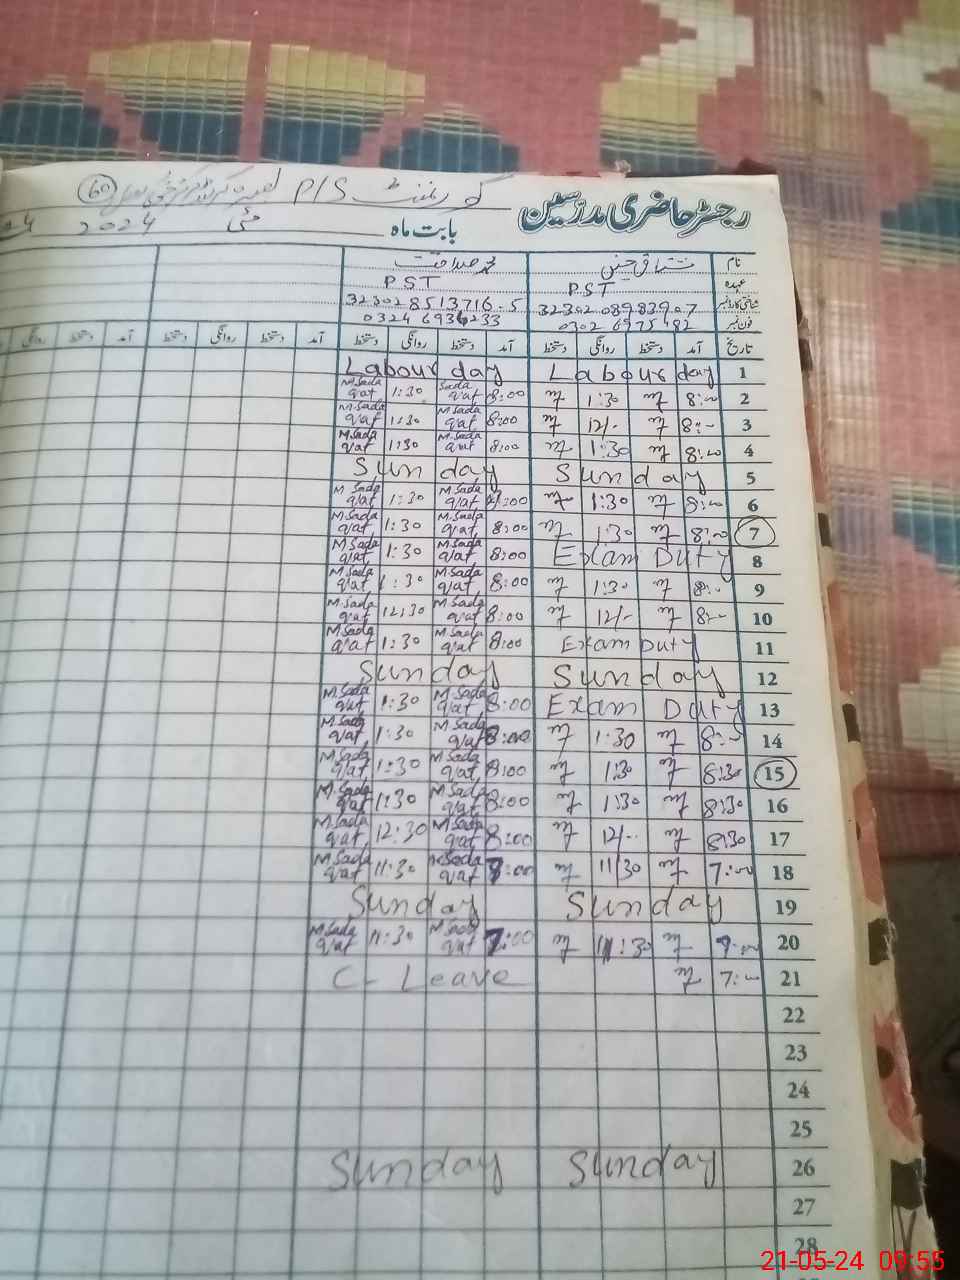 رجسٹر حاضری مدرسین
گورنمنٹ P/S 60
بابت ماہ مئی 2024
نام مشتاق حسن محمد صداقت
عہدہ PST PST
شناختی کارڈ نمبر
فون نمبر 0324 6936233
تاریخ آمد دستخط روانگی دستخط آمد دستخط روانگی دستخط آمد دستخط روانگی دستخط آمد دستخط روانگی
1 Labour day Labour day
2 8:00 1:30 8:00 Sada qat 1:30 M Sada qat
3 8:00 12/- 8:00 M Sada qat 1:30 M Sada qat
4 8:00 1:30 8:00 M Sada qat 1:30 M Sada qat
5 Sunday Sunday
6 8:00 1:30 8:00 M Sada qat 1:30 M Sada qat
7 8:00 1:30 8:00 M Sada qat 1:30 M Sada qat
8 Exam Duty 8:00 M Sada qat 1:30 M Sada qat
9 8:- 1:30 8:00 M Sada qat 1:30 M Sada qat
10 8:- 12/- 8:00 M Sada qat 12:30 M Sada qat
11 Exam Duty 8:00 M Sada qat 1:30 M Sada qat
12 Sunday Sunday
13 Exam Duty 8:00 M Sada qat 1:30 M Sada qat
14 8:- 1:30 8:00 M Sada qat 1:30 M Sada qat
15 8:30 1:30 8:00 M Sada qat 1:30 M Sada qat
16 8:30 1:30 8:00 M Sada qat 1:30 M Sada qat
17 8:30 12/- 8:00 M Sada qat 12:30 M Sada qat
18 7:00 11/30 7:00 M Sada qat 11:30 M Sada qat
19 Sunday Sunday
20 7:00 11:30 7:00 M Sada qat 11:30 M Sada qat
21 7:00 C- Leave
22
23
24
25
26 Sunday Sunday
27
28
21-05-24 09:55